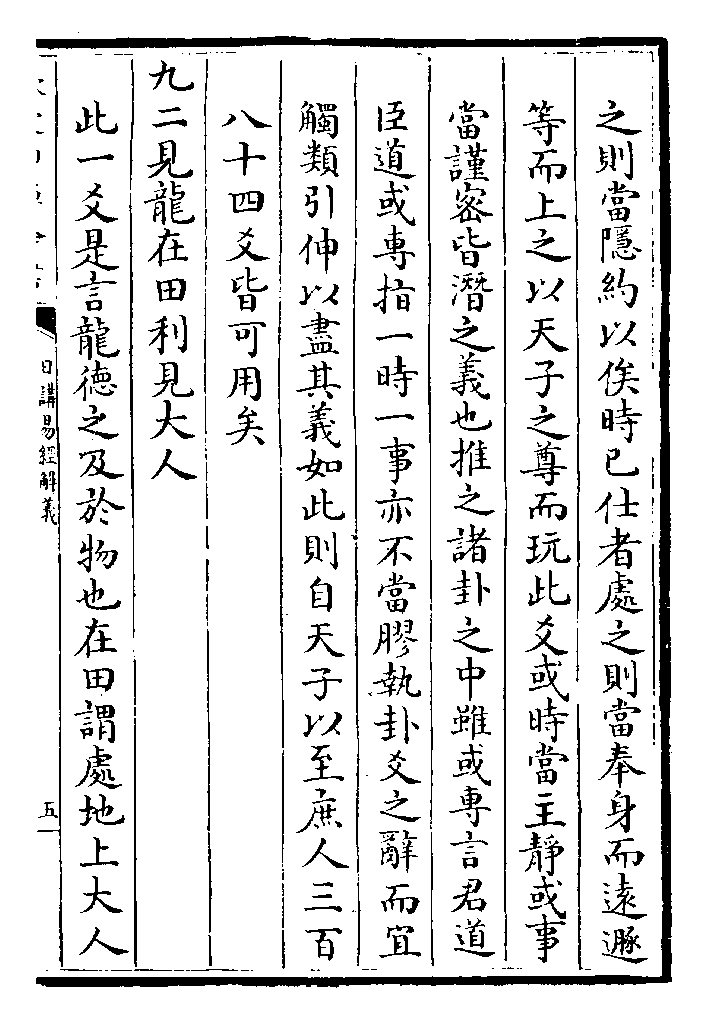 之則當隱約以俟時已仕者處之則當奉身而遠遯
等而上之以天子之尊而玩此爻或時當主靜或事
當謹宻皆潛之義也推之諸卦之中雖或専言君道
臣道或専指一時一事亦不當膠執卦爻之辭而宜
觸類引伸以盡其義如此則自天子以至庶人三百
八十四爻皆可用矣
九二見龍在田利見大人
此一爻是言龍德之及於物也在田謂處地上大人
日講易經解義
五